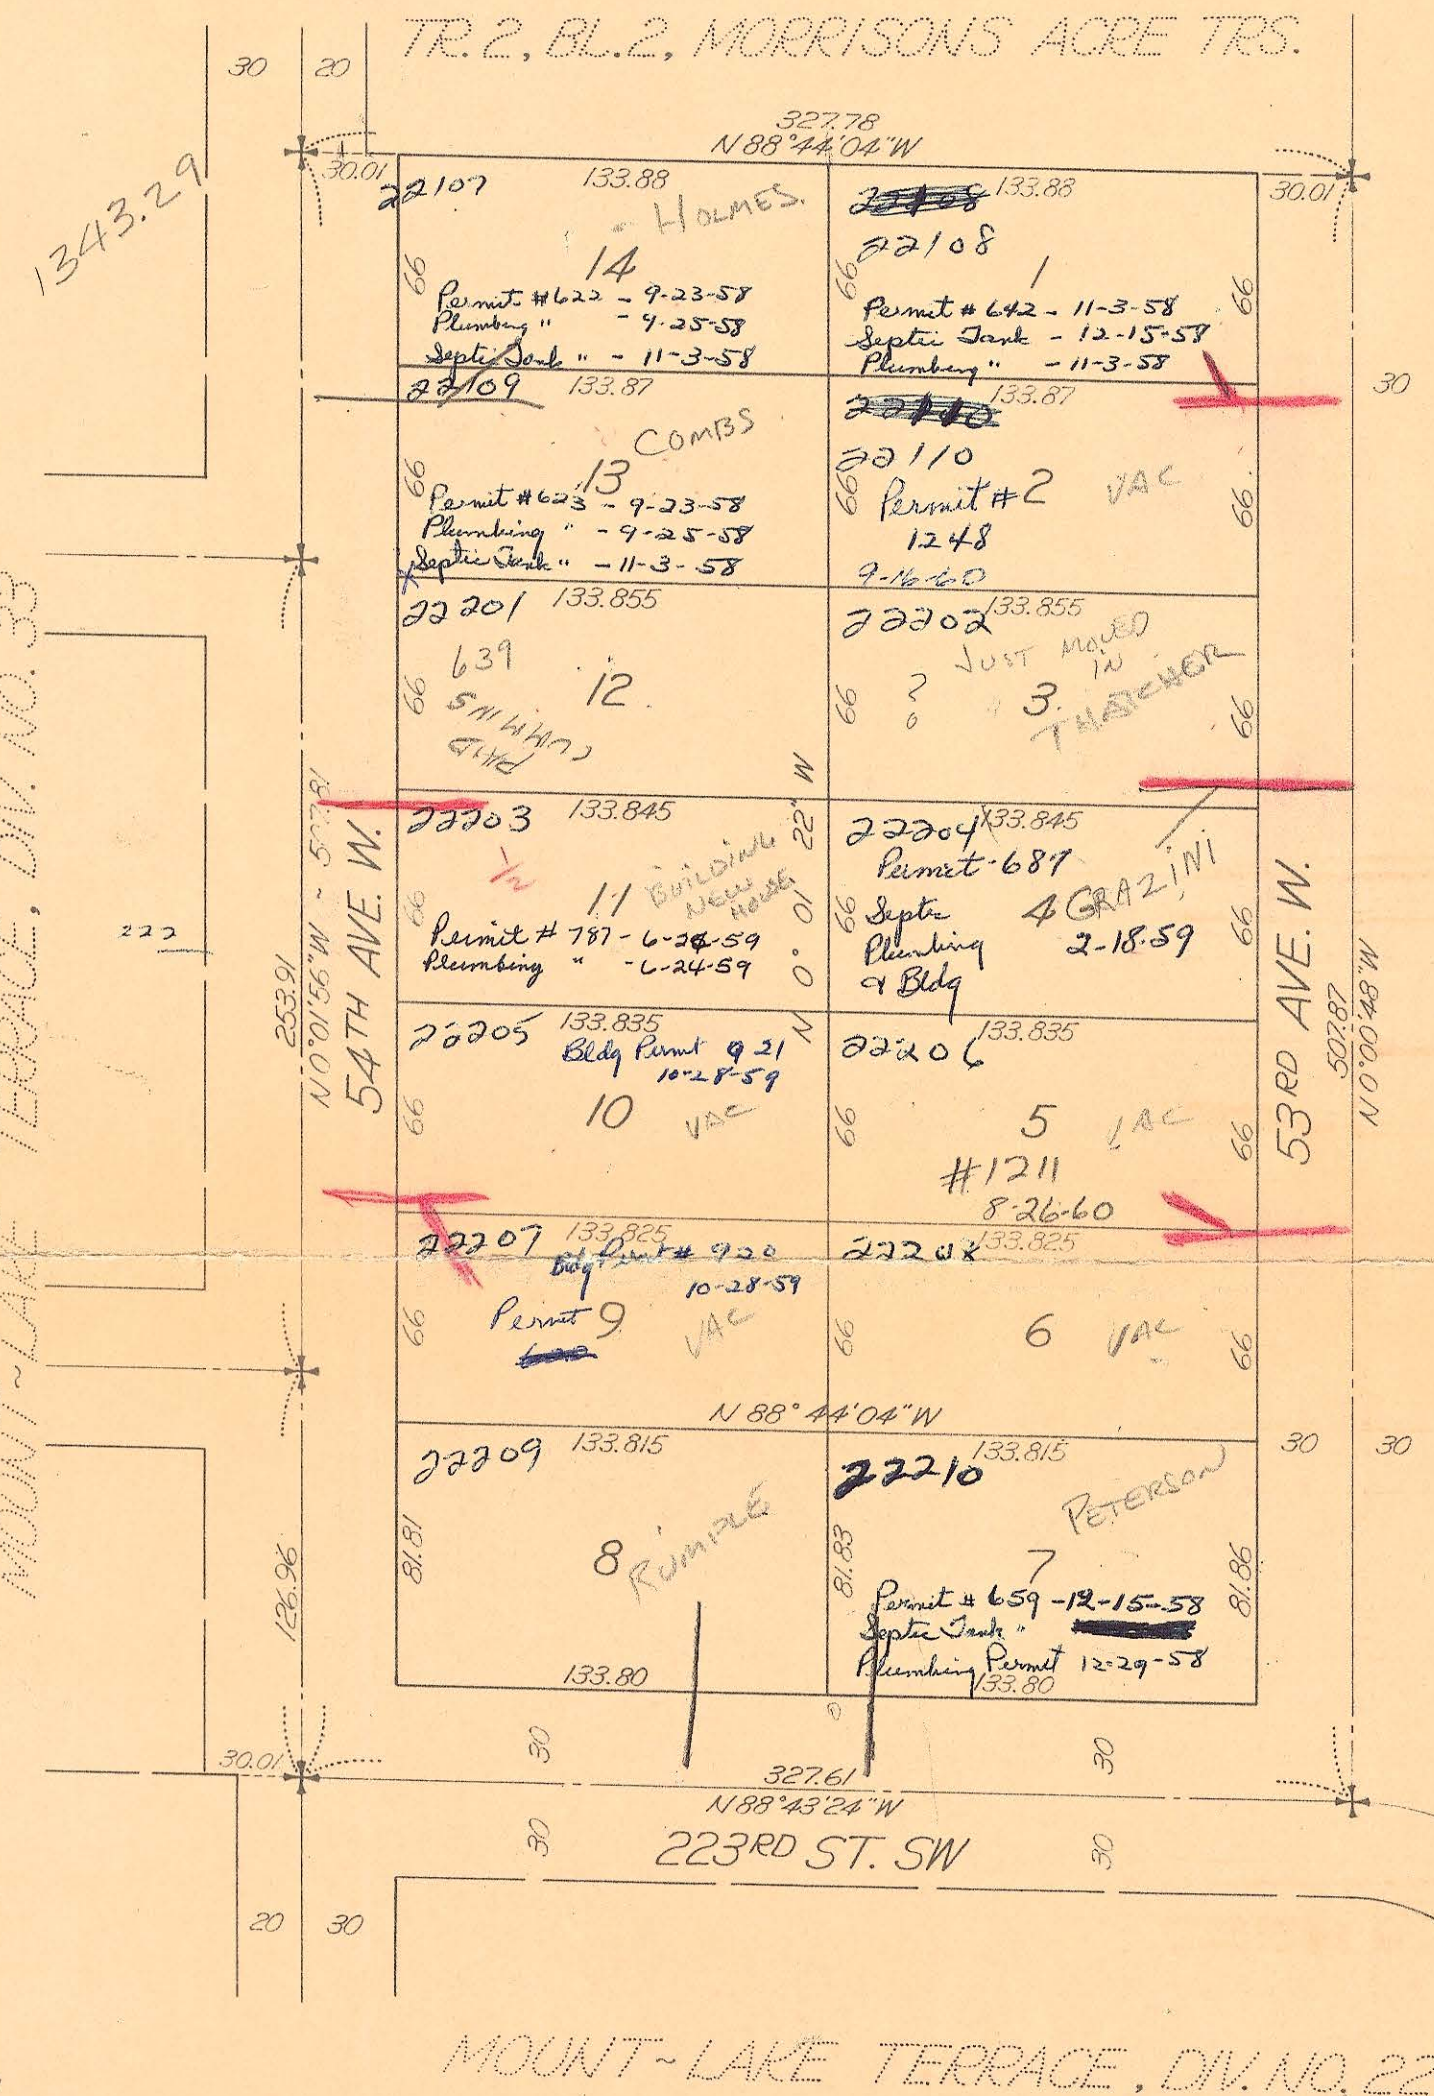 TR. 2, BL. 2, MORRISONS ACRE TRS.
30
20
327.78
N 88°44'04"W
30.01
30.01
1343.29
22107
133.88
- HOLMES.
14
66
Permit #622 - 9-23-58
Plumbing " - 9-25-58
Septic Tank " - 11-3-58
22108
133.88
22108
1
66
66
Permit # 642 - 11-3-58
Septic Tank - 12-15-58
Plumbing " - 11-3-58
30
22109
133.87
COMBS
13
66
Permit #623 - 9-23-58
Plumbing " - 9-25-58
Septic Tank " - 11-3-58
22110
133.87
22110
66
66
Permit # 2
VAC
1248
9-16-60
22201
133.855
639
12
66
CUMMINS
PAID
22202
133.855
JUST MOVED
IN
?
3
THATCHER
66
66
22203
133.845
1/2
11
BUILDING
NEW
HOUSE
66
Permit # 787 - 6-24-59
Plumbing " - 6-24-59
N 0° 01' 22" W
22204
133.845
Permit - 687
4
GRAZINI
66
66
Septic
Plumbing
& Bldg
2-18-59
22205
133.835
Bldg Permit 921
10-28-59
10
VAC
66
22206
133.835
5
VAC
66
66
#1211
8-26-60
22207
133.825
Bldg Permit # 920
10-28-59
Permit
9
VAC
66
22208
133.825
6
VAC
66
66
N 88°44'04"W
22209
133.815
8
RUMPLE
81.81
133.80
22210
133.815
PETERSON
7
81.83
81.86
Permit # 659 - 12-15-58
Septic Tank "
Plumbing Permit 12-29-58
133.80
30
30
MOUNT~LAKE TERRACE, DIV. NO. 33
222
253.91
N 0°01'56"W ~ 507.81
54TH AVE. W.
126.96
53RD AVE. W.
507.87
N 0°00'48"W
30.01
30
30
327.61
N 88°43'24"W
30
30
223RD ST. SW
20
30
MOUNT~LAKE TERRACE, DIV. NO. 22